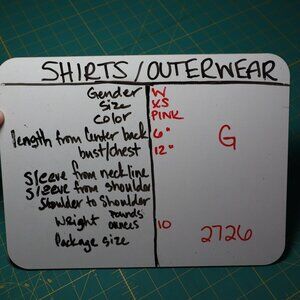 SHIRTS/OUTERWEAR
Gender W
Size XS
Color PINK
length from center back 6"
bust/chest 12"
G
Sleeve from neckline
Sleeve from shoulder
Shoulder to Shoulder
Weight pounds
ounces 10
Package size
2726